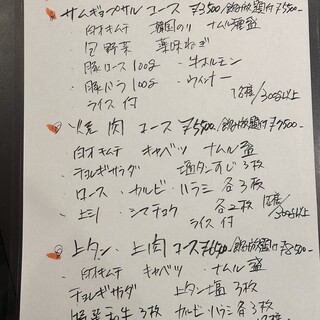 サムギョプサルコース ¥3500- 飲み放題付¥5500-
・白才キムチ 韓国のり ナムル三種盛
・包野菜 薬味ねぎ
・豚ロース100g ・牛ホルモン
・豚バラ 100g ・ウィンナー
・ライス付
300g以上
焼肉コース ¥5500- 飲み放題付¥7500-
・白才キムチ キャベツ ナムル盛
・チョレギサラダ 塩タンすじ3枚
・ロース ・カルビ・ハラミ 各3枚
・上ミノ ・シマチョウ 各2枚
ライス付
300g以上
上タン・上肉コース ¥6500- 飲み放題付¥8500-
・白才キムチ キャベツ ナムル盛
チョレギサラダ 上タン塩3枚
3枚 カルビ・ハラミ各3枚